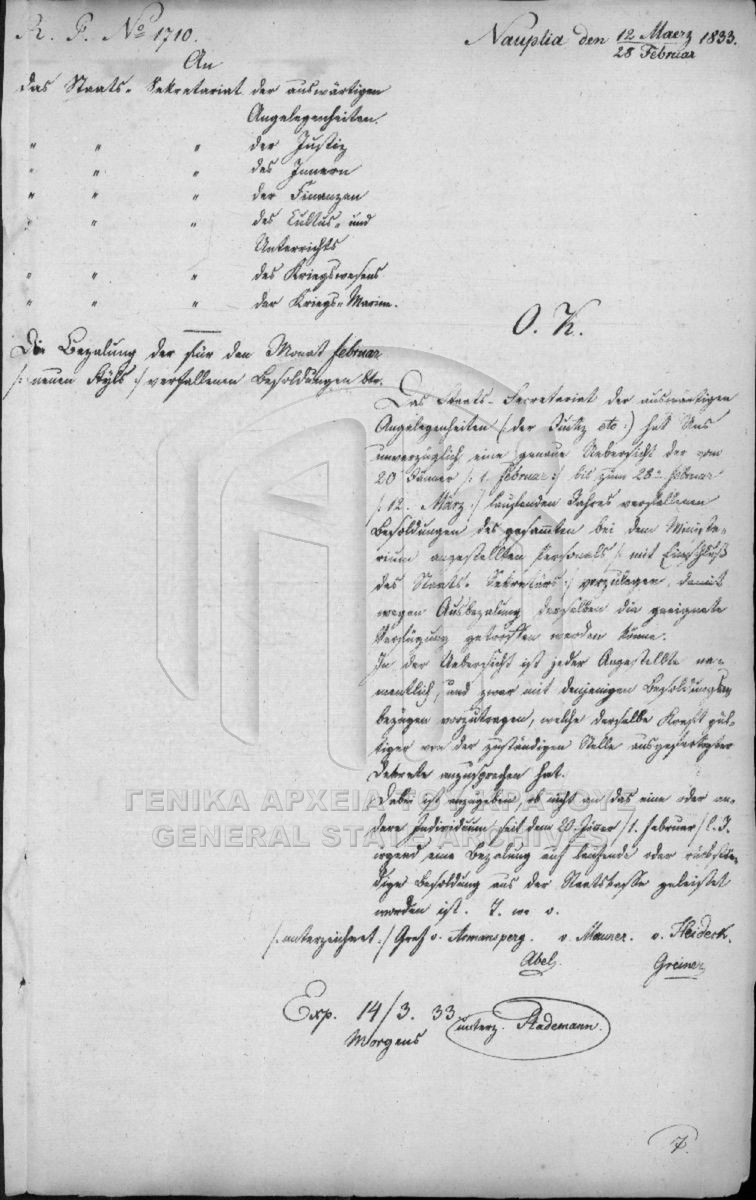 R. G. No 1710.
Nauplia den 12 Maerz / 28 Februar 1833.
An
das Staats-Sekretariat der auswärtigen
Angelegenheiten.
" " " der Justiz
" " " des Innern
" " " der Finanzen
" " " des Cultus- und
Unterrichts
" " " des Kriegswesens
" " " der Kriegs-Marine.
O. K.
Die Bezalung der für den Monat februar
/: neuen Styls :/ verfallenen Besoldungen btr.
Das Staats-Secretariat der auswärtigen
Angelegenheiten (: der Justiz etc :) hat Uns
unverzüglich eine genaue Uebersicht der vom
20 Jänner /: 1. februar :/ bis zum 28n februar
/: 12. März :/ laufenden Jahres verfallenen
Besoldungen des gesammten bei dem Ministe-
rium angestellten Personals /: mit Einschluß
des Staats-Sekretärs :/ vorzulegen, damit
wegen Ausbezalung derselben die geeignete
Verfügung getroffen werden könne.
In der Uebersicht ist jeder Angestellte na-
mentlich, und zwar mit denjenigen Besoldungs
bezügen vorzutragen, welche derselbe Kraft gül-
tiger von der zuständigen Stelle ausgefertigter
Dekrete anzusprechen hat.
Dabei ist anzugeben, ob nicht an das eine oder an-
dere Individuum seit dem 20 Jäner /1. februar/ l. J.
irgend eine Bezalung auf laufende oder rückstän-
dige Besoldung aus der Staatskasse geleistet
worden ist.
/: unterzeichnet :/ Graf v. Armansperg. v. Maurer. v. Heideck.
Abel. Greiner
Exp. 14/3. 33
Morgens
unterz. Stademann.
7.
ΓΕΝΙΚΑ ΑΡΧΕΙΑ ΤΟΥ ΚΡΑΤΟΥΣ
GENERAL STATE ARCHIVES